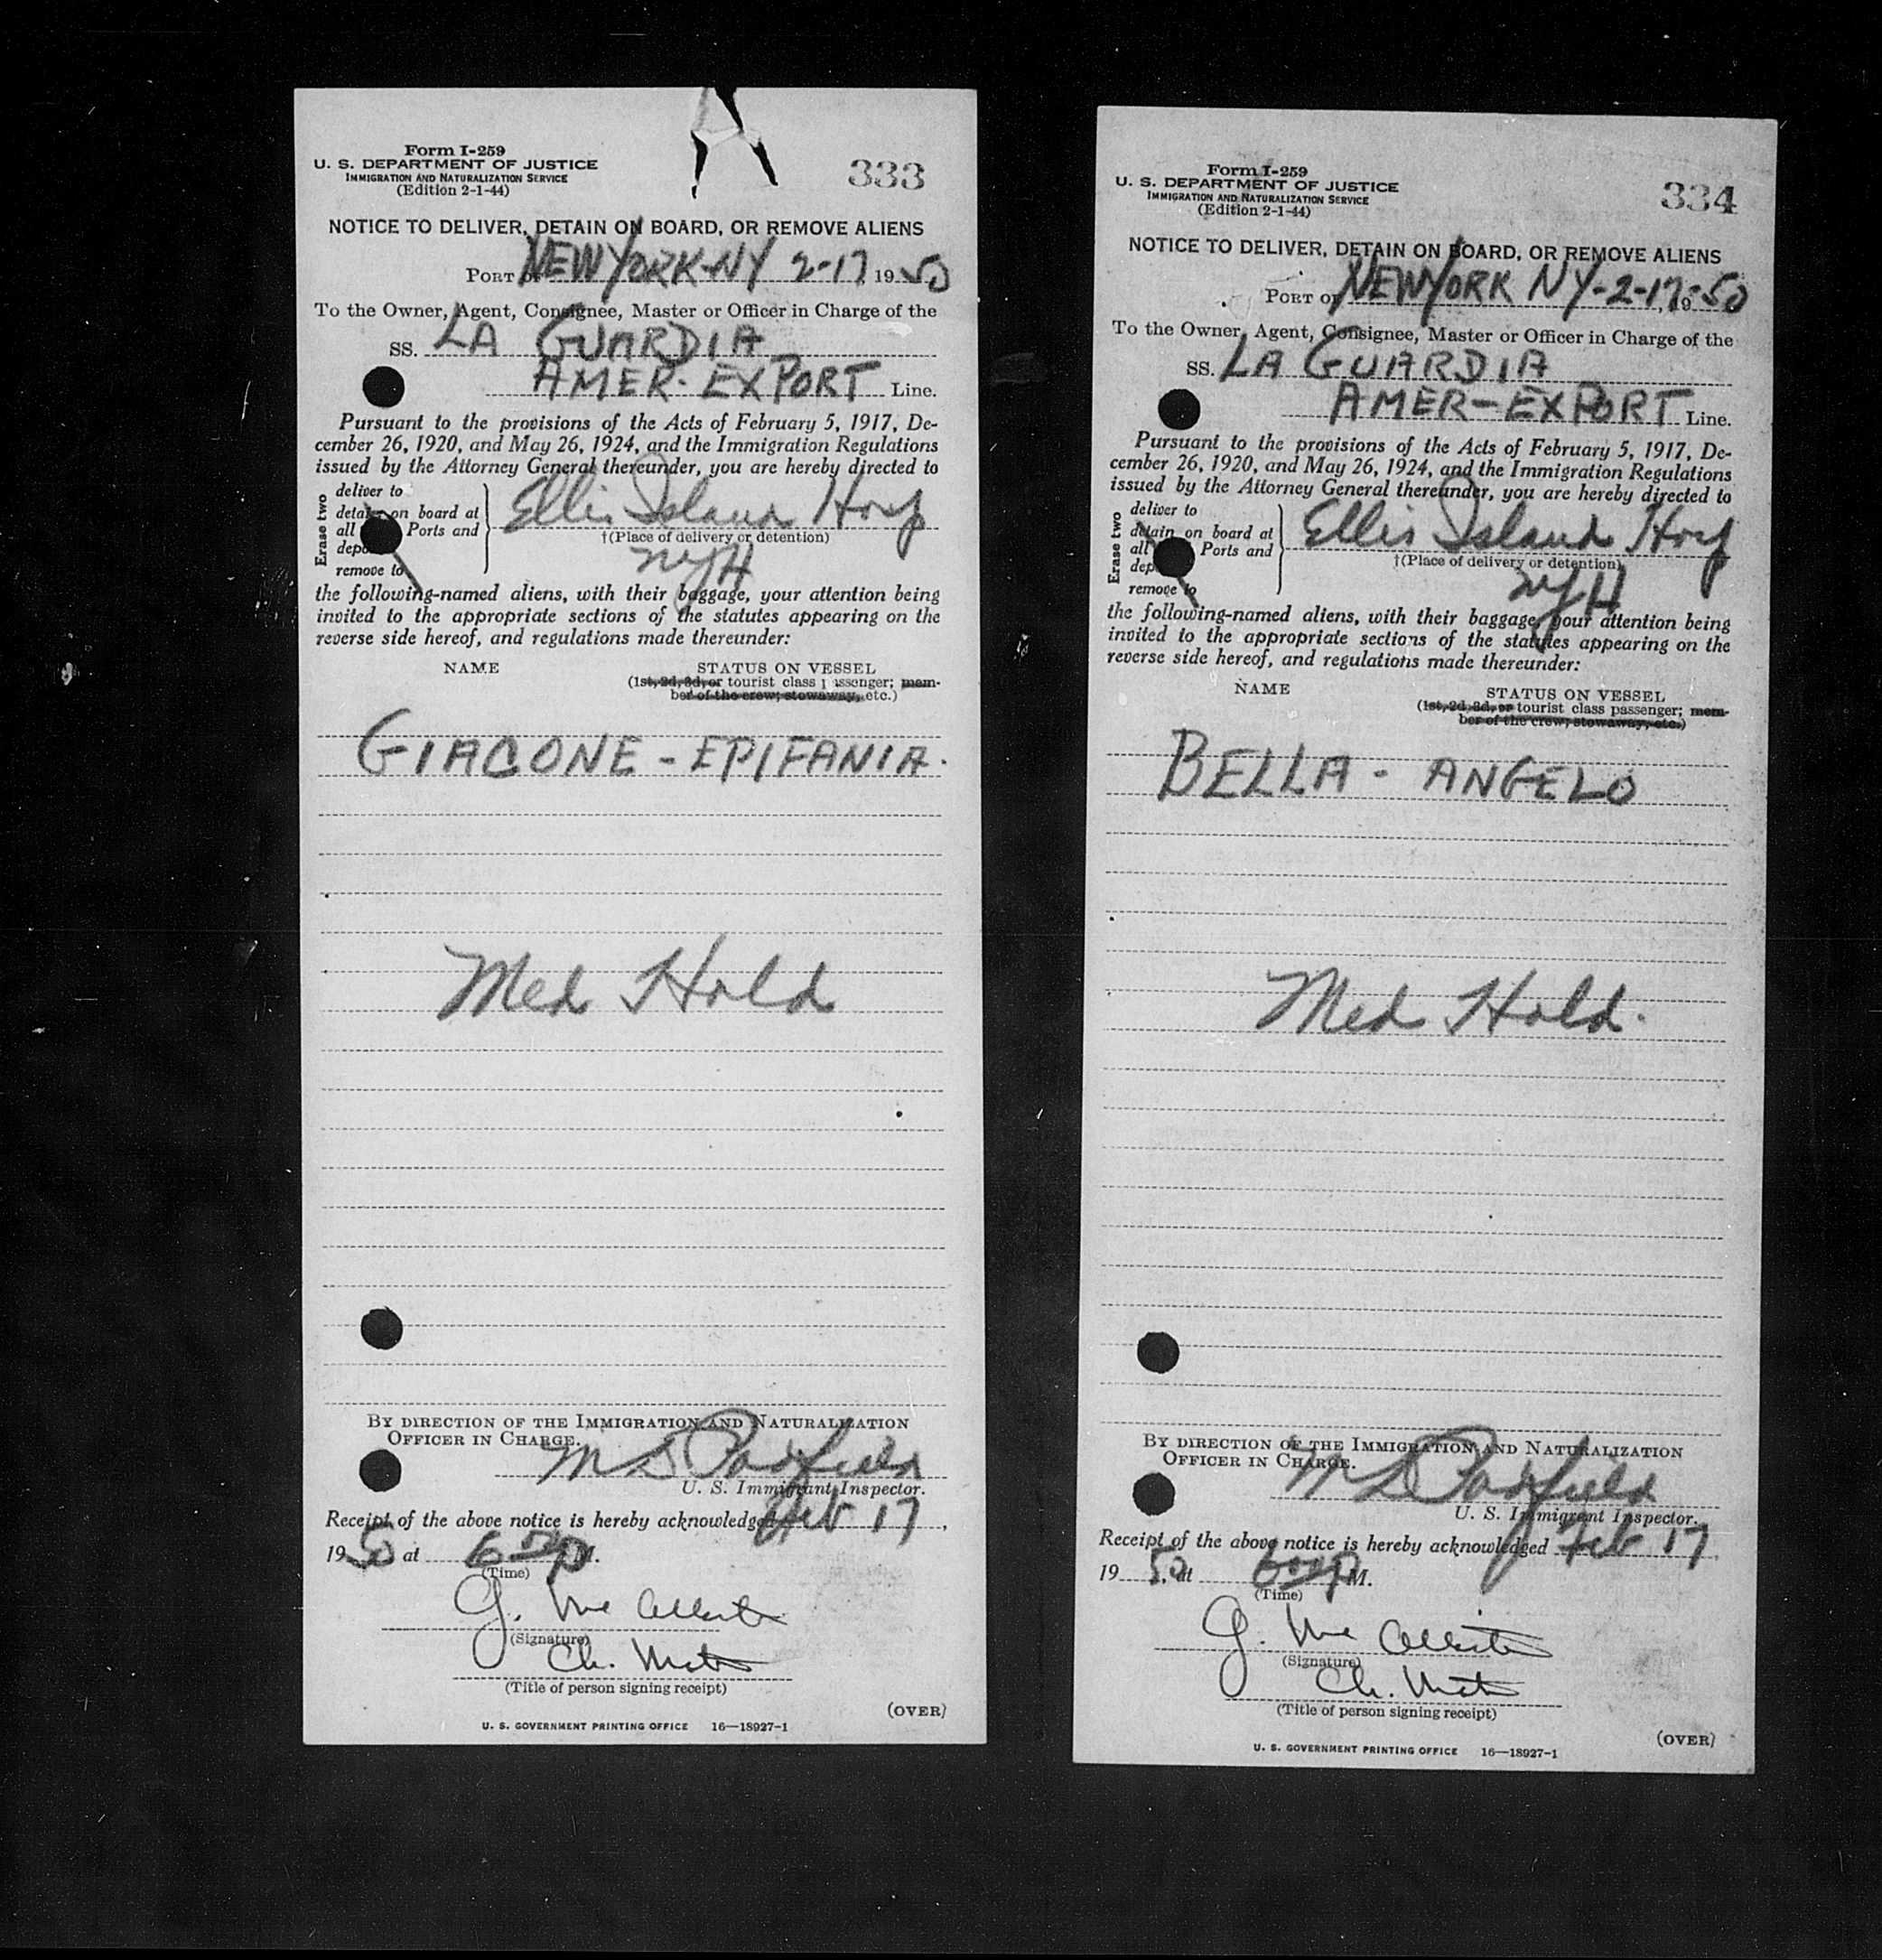 Form I-259
U. S. DEPARTMENT OF JUSTICE
IMMIGRATION AND NATURALIZATION SERVICE
(Edition 2-1-44)
333
NOTICE TO DELIVER, DETAIN ON BOARD, OR REMOVE ALIENS
PORT OF NEW YORK-NY 2-17 1950
To the Owner, Agent, Consignee, Master or Officer in Charge of the
SS. LA GUARDIA
AMER-EXPORT Line.
Pursuant to the provisions of the Acts of February 5, 1917, De-
cember 26, 1920, and May 26, 1924, and the Immigration Regulations
issued by the Attorney General thereunder, you are hereby directed to
Erase two
deliver to
detain on board at
all Ports and
remove to
Ellis Island Hosp
†(Place of delivery or detention)
NYH
the following-named aliens, with their baggage, your attention being
invited to the appropriate sections of the statutes appearing on the
reverse side hereof, and regulations made thereunder:
NAME
STATUS ON VESSEL
(1st, 2d, 3d, or tourist class passenger; mem-
ber of the crew; stowaway, etc.)
GIACONE - EPIFANIA.
Med Hold
BY DIRECTION OF THE IMMIGRATION AND NATURALIZATION
OFFICER IN CHARGE.
M D
U. S. Immigrant Inspector.
Receipt of the above notice is hereby acknowledged Feb 17,
1950 at 6 P M.
(Time)
G. Mc
(Signature)
Ch. Mate
(Title of person signing receipt)
(OVER)
U. S. GOVERNMENT PRINTING OFFICE 16—18927-1
Form I-259
U. S. DEPARTMENT OF JUSTICE
IMMIGRATION AND NATURALIZATION SERVICE
(Edition 2-1-44)
334
NOTICE TO DELIVER, DETAIN ON BOARD, OR REMOVE ALIENS
PORT OF NEW YORK NY-2-17, 19-50
To the Owner, Agent, Consignee, Master or Officer in Charge of the
SS. LA GUARDIA
AMER-EXPORT Line.
Pursuant to the provisions of the Acts of February 5, 1917, De-
cember 26, 1920, and May 26, 1924, and the Immigration Regulations
issued by the Attorney General thereunder, you are hereby directed to
Erase two
deliver to
detain on board at
all Ports and
remove to
Ellis Island Hosp
†(Place of delivery or detention)
NYH
the following-named aliens, with their baggage, your attention being
invited to the appropriate sections of the statutes appearing on the
reverse side hereof, and regulations made thereunder:
NAME
STATUS ON VESSEL
(1st, 2d, 3d, or tourist class passenger; mem-
ber of the crew; stowaway, etc.)
BELLA - ANGELO
Med Hold.
BY DIRECTION OF THE IMMIGRATION AND NATURALIZATION
OFFICER IN CHARGE.
M D
U. S. Immigrant Inspector.
Receipt of the above notice is hereby acknowledged Feb 17
1950, at P M.
(Time)
G. Mc
(Signature)
Ch. Mate
(Title of person signing receipt)
(OVER)
U. S. GOVERNMENT PRINTING OFFICE 16—18927-1